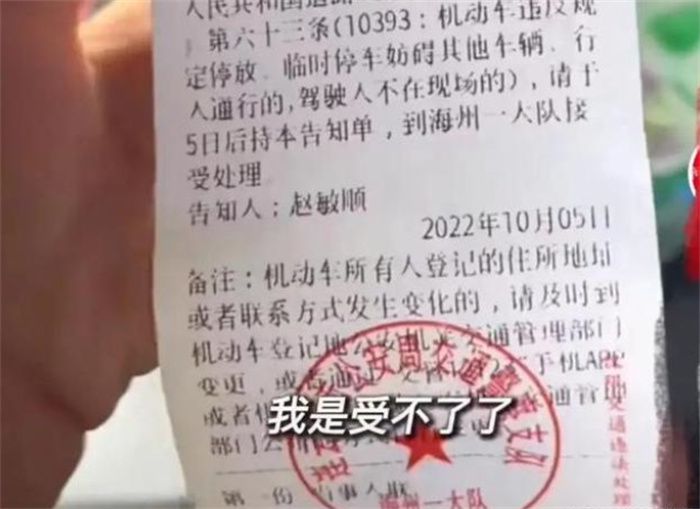 人民共和国道路
第六十三条(10393：机动车违反规
定停放、临时停车妨碍其他车辆、行
人通行的,驾驶人不在现场的)，请于
5日后持本告知单，到海州一大队接
受处理
告知人；赵敏顺
2022年10月05日
备注：机动车所有人登记的住所地址
或者联系方式发生变化的，请及时到
机动车登记地公安机关交通管理部门
变更，或者通过
手机APP
或者
通管理
部门
我是受不了了
公安局交通警察支队
海州一大队
第一份
交通违法处理